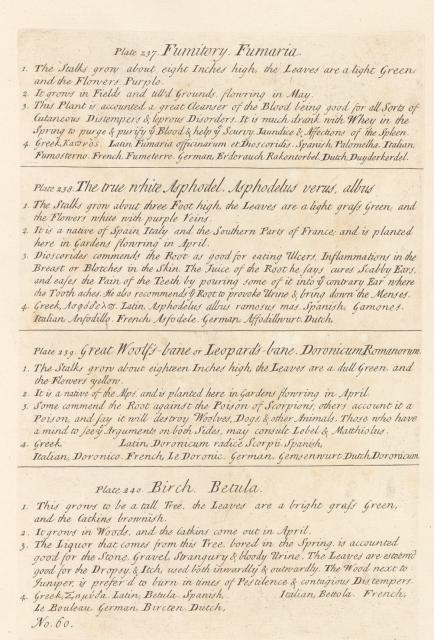 Plate 237. Fumitory. Fumaria.
1. The Stalks grow about eight Inches high, the Leaves are a light Green,
and the Flowers Purple.
2. It grows in Fields and till'd Grounds, flowring in May.
3. This Plant is accounted a great Cleanser of the Blood being good for all Sorts of
Cutaneous Distempers & leprous Disorders. It is much drank with Whey in the
Spring to purge & purify yͤ Blood & help yͤ Scurvy, Jaundice & Affections of the Spleen.
4. Greek, Καπνός. Latin, Fumaria officinarum et Dioscoridis. Spanish, Palomelha. Italian,
Fumosterno. French, Fumeterre. German, Erderauch Rakentorbel. Dutch, Duyderkerdel.
Plate 238. The true white Asphodel. Asphodelus verus, albus
1. The Stalks grow about three Foot high, the Leaves are a light graſs Green, and
the Flowers white with purple Veins.
2. It is a native of Spain Italy and the Southern Parts of France; and is planted
here in Gardens flowring in April.
3. Dioscorides commends the Root as good for eating Ulcers, Inflammations in the
Breast or Blotches in the Skin. The Juice of the Root he says cures Scabby Ears,
and eases the Pain of the Teeth by pouring some of it into yͤ contrary Ear where
the Tooth aches. He also recommends yͤ Root to provoke Urine & bring down the Menses.
4. Greek, Latin, Asphodelus albus ramosus mas. Spanish, Gamones.
Italian, Anfodillo. French, Asfodele. German, Affodillwurt. Dutch.
Plate 239. Great Woolfs-bane or Leopard's-bane. Doronicum Romanorum.
1. The Stalks grow about eighteen Inches high, the Leaves are a dull Green, and
the Flowers yellow.
2. It is a native of the Alps, and is planted here in Gardens flowring in April.
3. Some commend the Root against the Poison of Scorpions, others account it a
Poison, and say it will destroy Woolves, Dogs, & other Animals. Those who have
a mind to see yͤ Arguments on both Sides, may consult Lobel & Matthiolus.
4. Greek Latin, Doronicum radice Scorpii. Spanish,
Italian, Doronico. French, Le Doronic. German, Gemsenwurt. Dutch, Doronicum
Plate 240. Birch. Betula.
1. This grows to be a tall Tree, the Leaves are a bright graſs Green,
and the Catkins brownish.
2. It grows in Woods, and the Catkins come out in April.
3. The Liquor that comes from this Tree, bored in the Spring, is accounted
good for the Stone, Gravel, Strangury & bloody Urine. The Leaves are esteem'd
good for the Dropsy & Itch, used both inwardly & outwardly. The Wood next to
Juniper, is prefer'd to burn in times of Pestilence & contagious Distempers.
4. Greek, Σημύδα. Latin, Betula. Spanish, Italian, Bettola. French,
Le Bouleau. German, Bircten. Dutch,
No. 60.